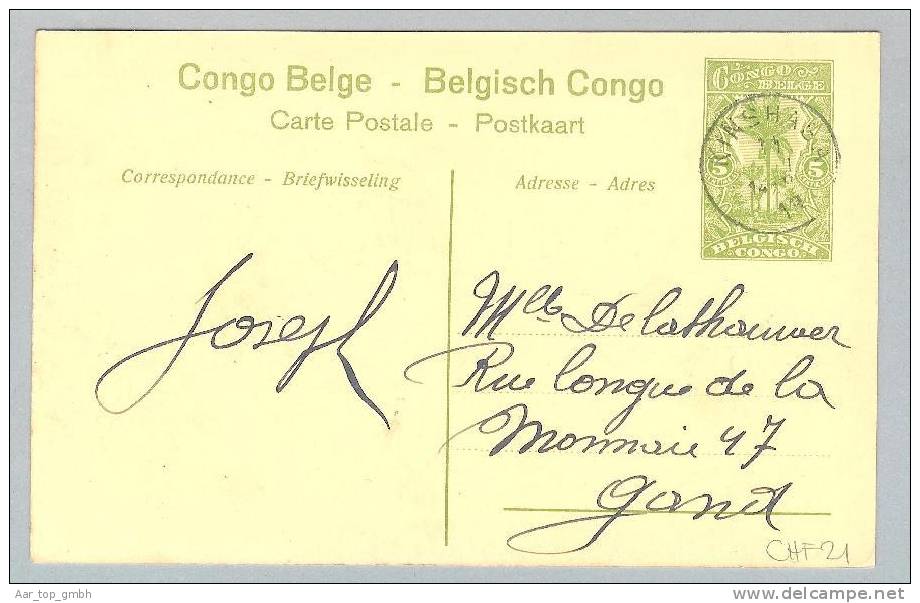 Congo Belge - Belgisch Congo
Carte Postale - Postkaart
Correspondance - Briefwisseling
Adresse - Adres
CONGO
BELGE
5 5
BELGISCH
CONGO
KINSHASA
11
Joseph
Mlle Delathouwer
Rue longue de la
Monnaie 47
Gand
CHF 21
Aar_top_gmbh
www.delcampe.net